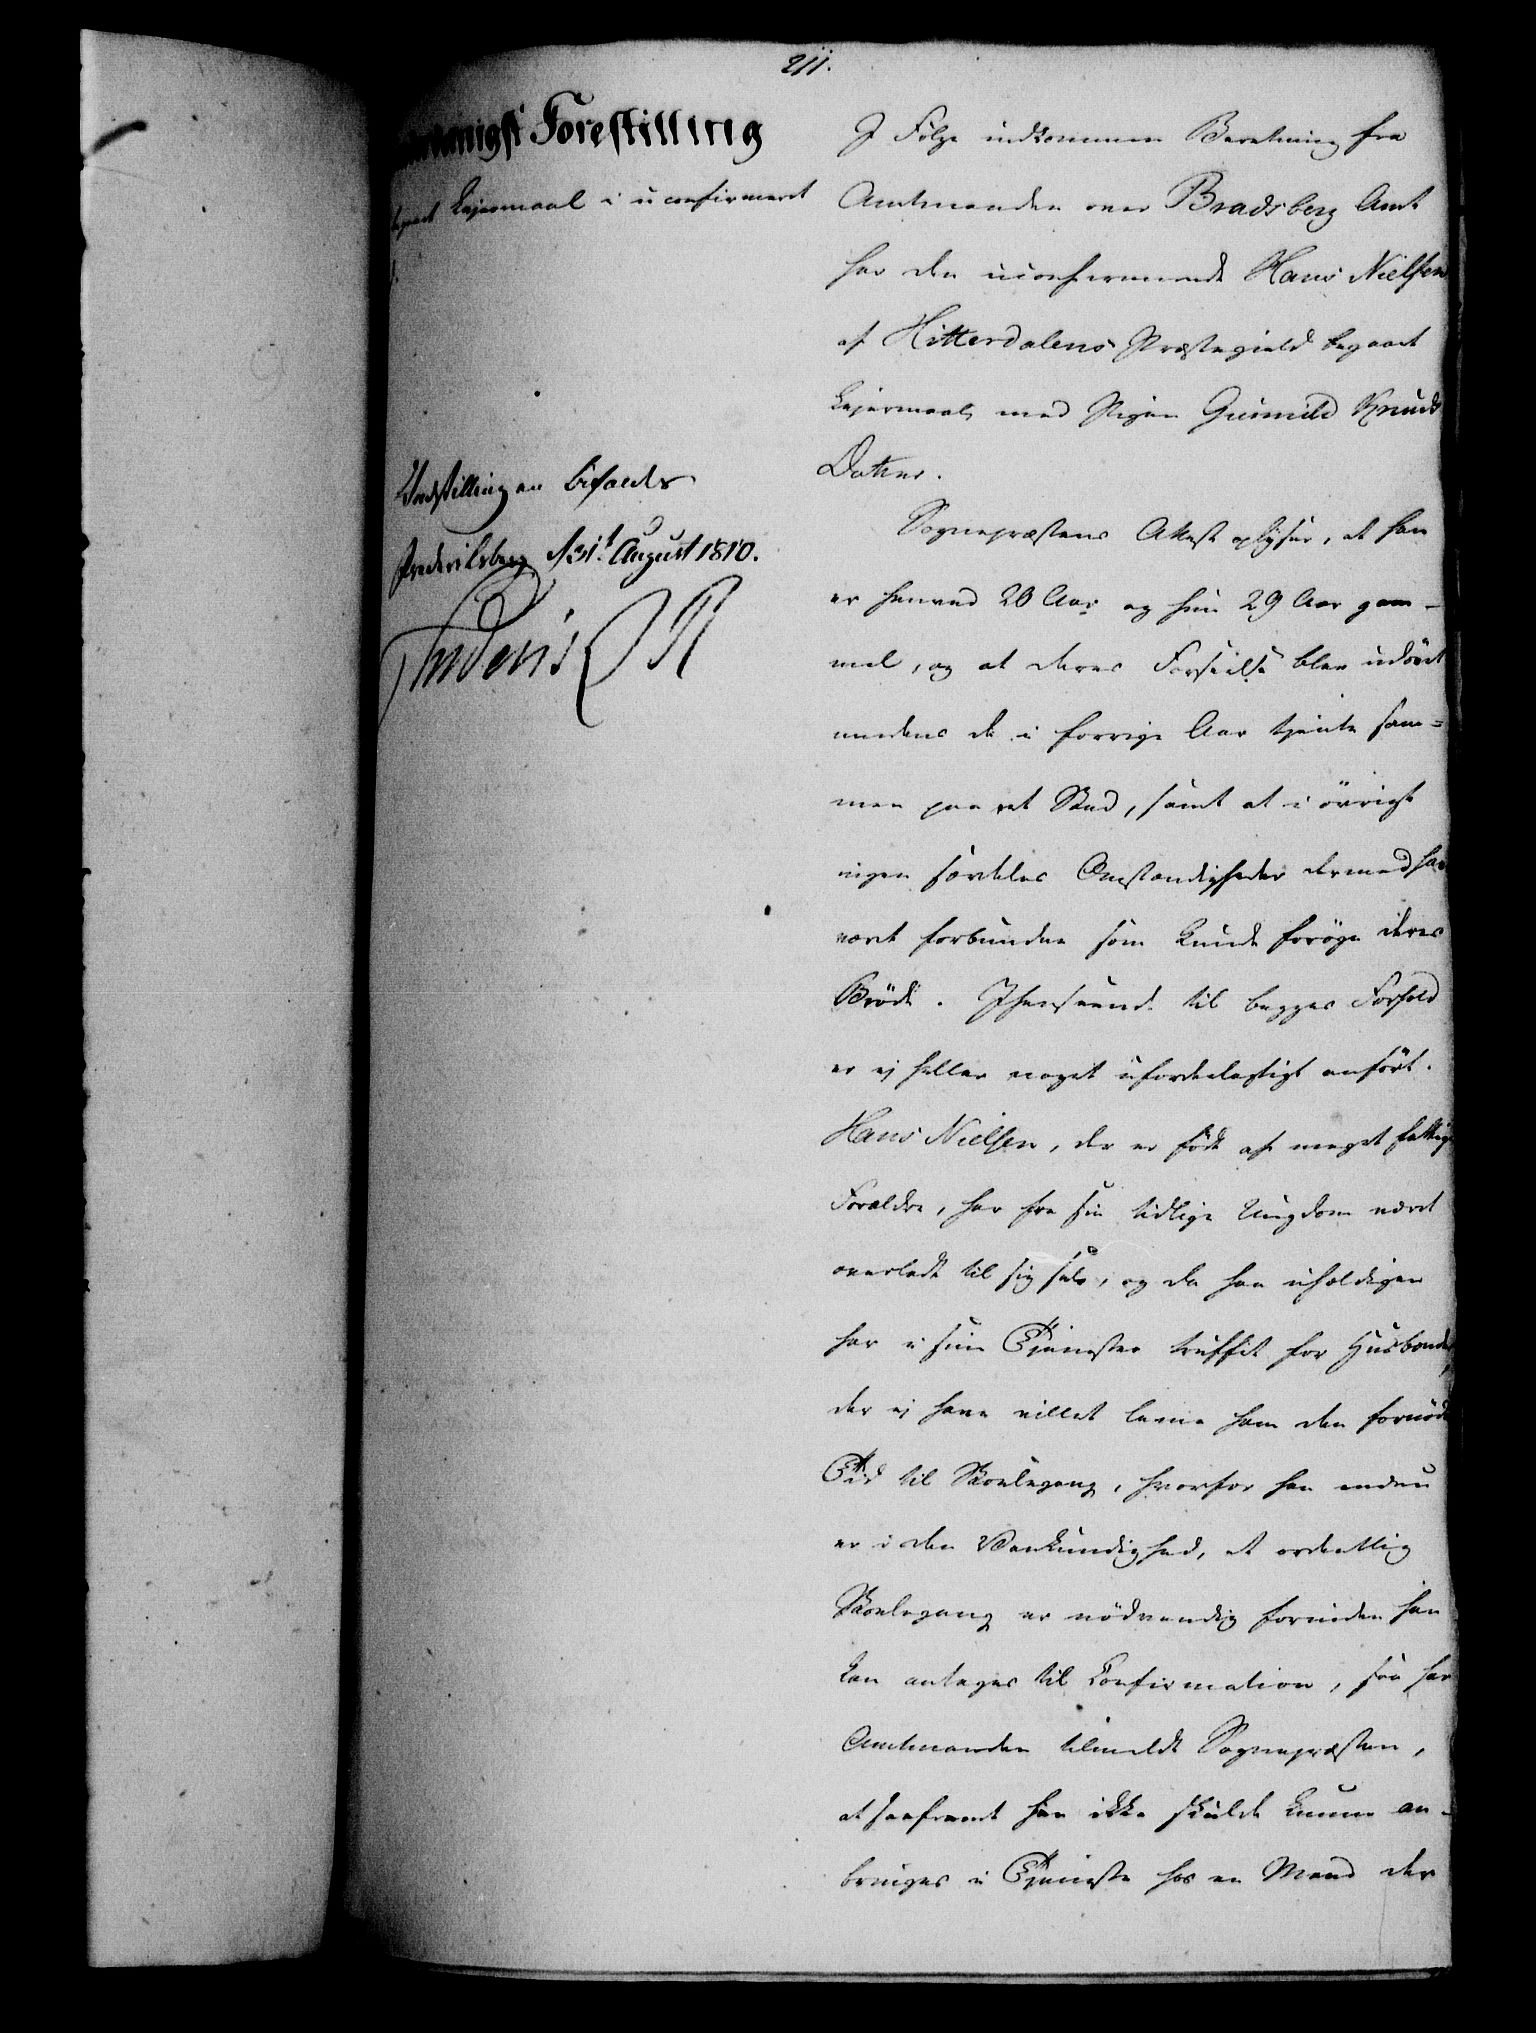 211.
Forestilling
begaaet Leiermaal i uconfirmeret
Indstillingen bifaldes
Frederiksberg d. 31t August 1810.
Frederik R
I Følge indkommen Beretning fra
Amtmanden over Bradsberg Amt
har den uconfirmerede Hans Nielsen
af Hitterdalens Præstegield begaaet
Leiermaal med Pigen Gunnild Knuds
Datter.
Sognepræstens Attest oplyser, at han
er henved 20 Aar og hun 29 Aar gam-
mel, og at deres Forseelse blev udøvet
medens de i forrige Aar tjente sam-
men paa et Sted, samt at i øvrigt
ingen særdeles Omstændigheder dermed har
været forbunden som kunde forøge deres
Brøde. I henseende til begges Forhold
er ej heller noget ufordeelagtigt anført.
Hans Nielsen, der er født af meget fattige
Forældre, har fra sin tidlige Ungdom været
overladt til sig selv, og da han uheldigen
har i sine Tjenester truffet for Husbonder,
der ej have villet levne ham den fornødne
Tid til Skolegang, hvorfor han endnu
er i den Vankundighed, at ordentlig
Skolegang er nødvendig forinden han
kan antages til Confirmation, saa har
Amtmanden tilmeldt Sognepræsten,
at saafremt han ikke skulde kunne an-
bringes i Tjeneste hos en Mand der